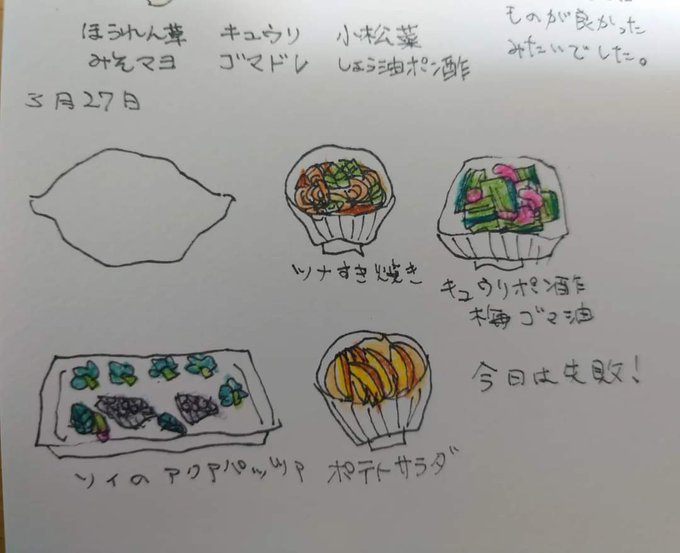 ほうれん草 キュウリ 小松菜
みそマヨ ゴマドレ しょう油ポン酢
ものが良かった
みたいでした。
5月27日
ツナすき焼き
キュウリポン酢
梅ゴマ油
今日は失敗!
ソイのアクアパッツァ ポテトサラダ